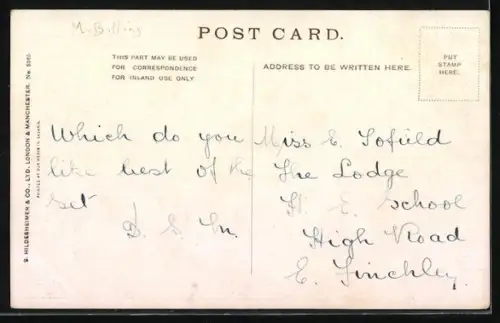 M. Billing
POST CARD.
THIS PART MAY BE USED
FOR CORRESPONDENCE
FOR INLAND USE ONLY
ADDRESS TO BE WRITTEN HERE.
PUT
STAMP
HERE.
S. HILDESHEIMER & CO., LTD. LONDON & MANCHESTER. No.
Which do you
like best of the
set
Miss E. Tofield
The Lodge
H. E. School
High Road
E. Finchley.